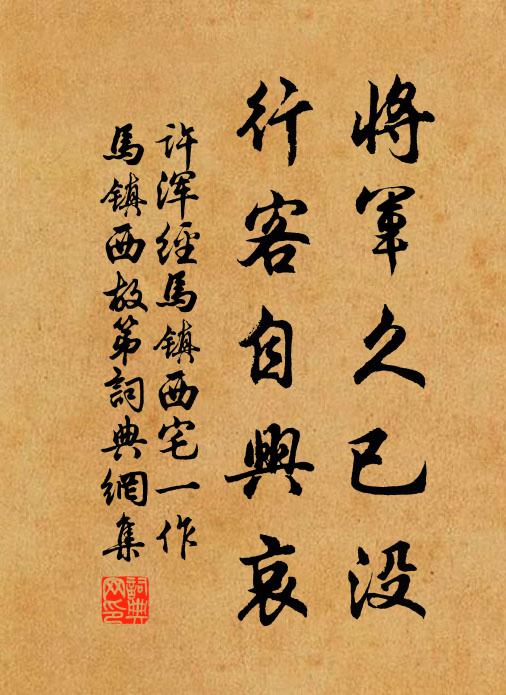 將軍久已没
行客自興哀
許渾經馬鎮西宅一作
馬鎮西故第詞典網集
詞典網印